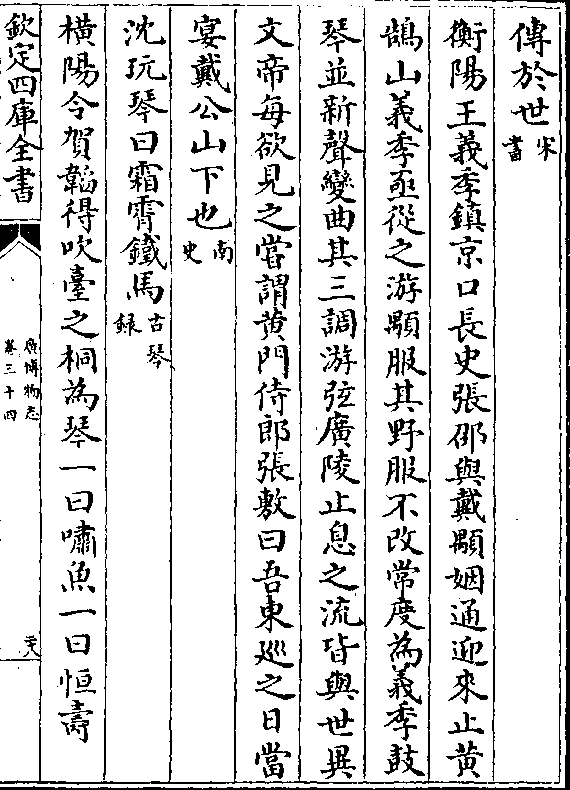 傳於世宋書
衡陽王義季鎮京口長史張邵與戴顒姻通迎來止黄
鵠山義季亟從之游顒服其野服不改常度為義季鼓
琴並新聲變曲其三調游弦廣陵止息之流皆與世異
文帝每欲見之嘗謂黄門侍郎張敷曰吾東巡之日當
宴戴公山下也南史
沈玩琴曰霜霄鐵馬古琴録
橫陽令賀韜得吹臺之桐為琴一曰嘯魚一曰恒壽
欽定四庫全書
廣博物志
卷三十四
二十八